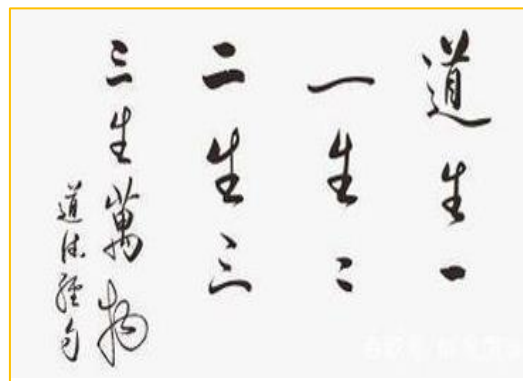 道生一
一生二
二生三
三生萬物
道德經句